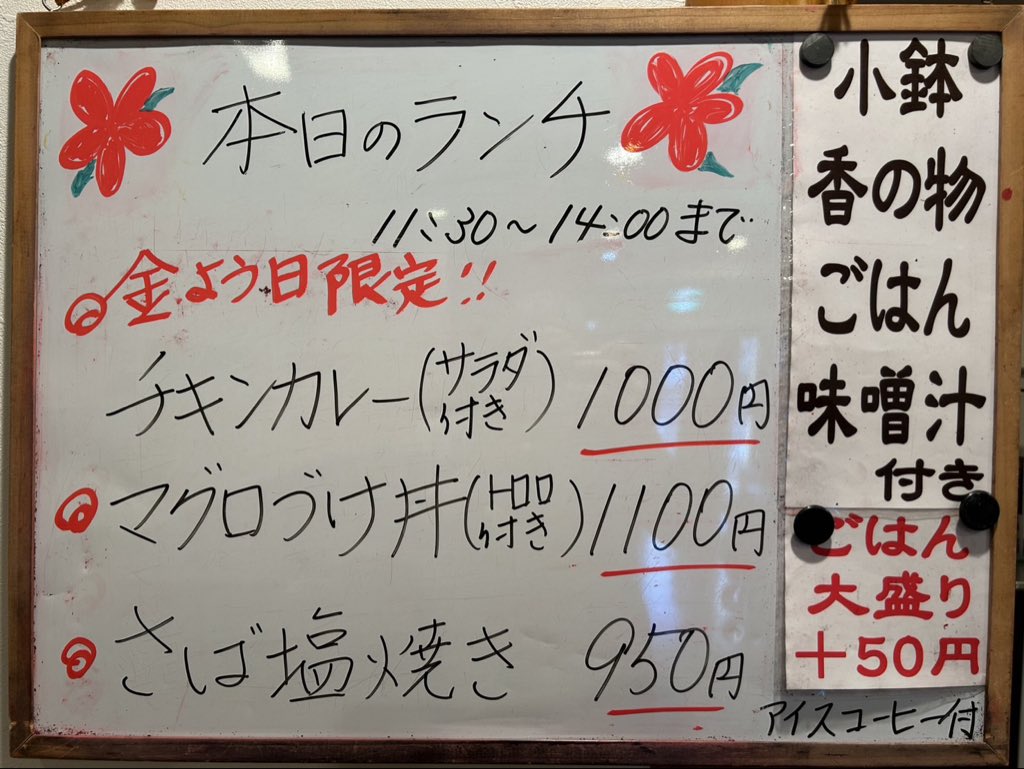 本日のランチ
11:30～14:00まで
金よう日限定!!
チキンカレー(サラダ付き) 1000円
マグロづけ丼(トロロ付き) 1100円
さば塩焼き 950円
小鉢
香の物
ごはん
味噌汁
付き
ごはん
大盛り
＋50円
アイスコーヒー付